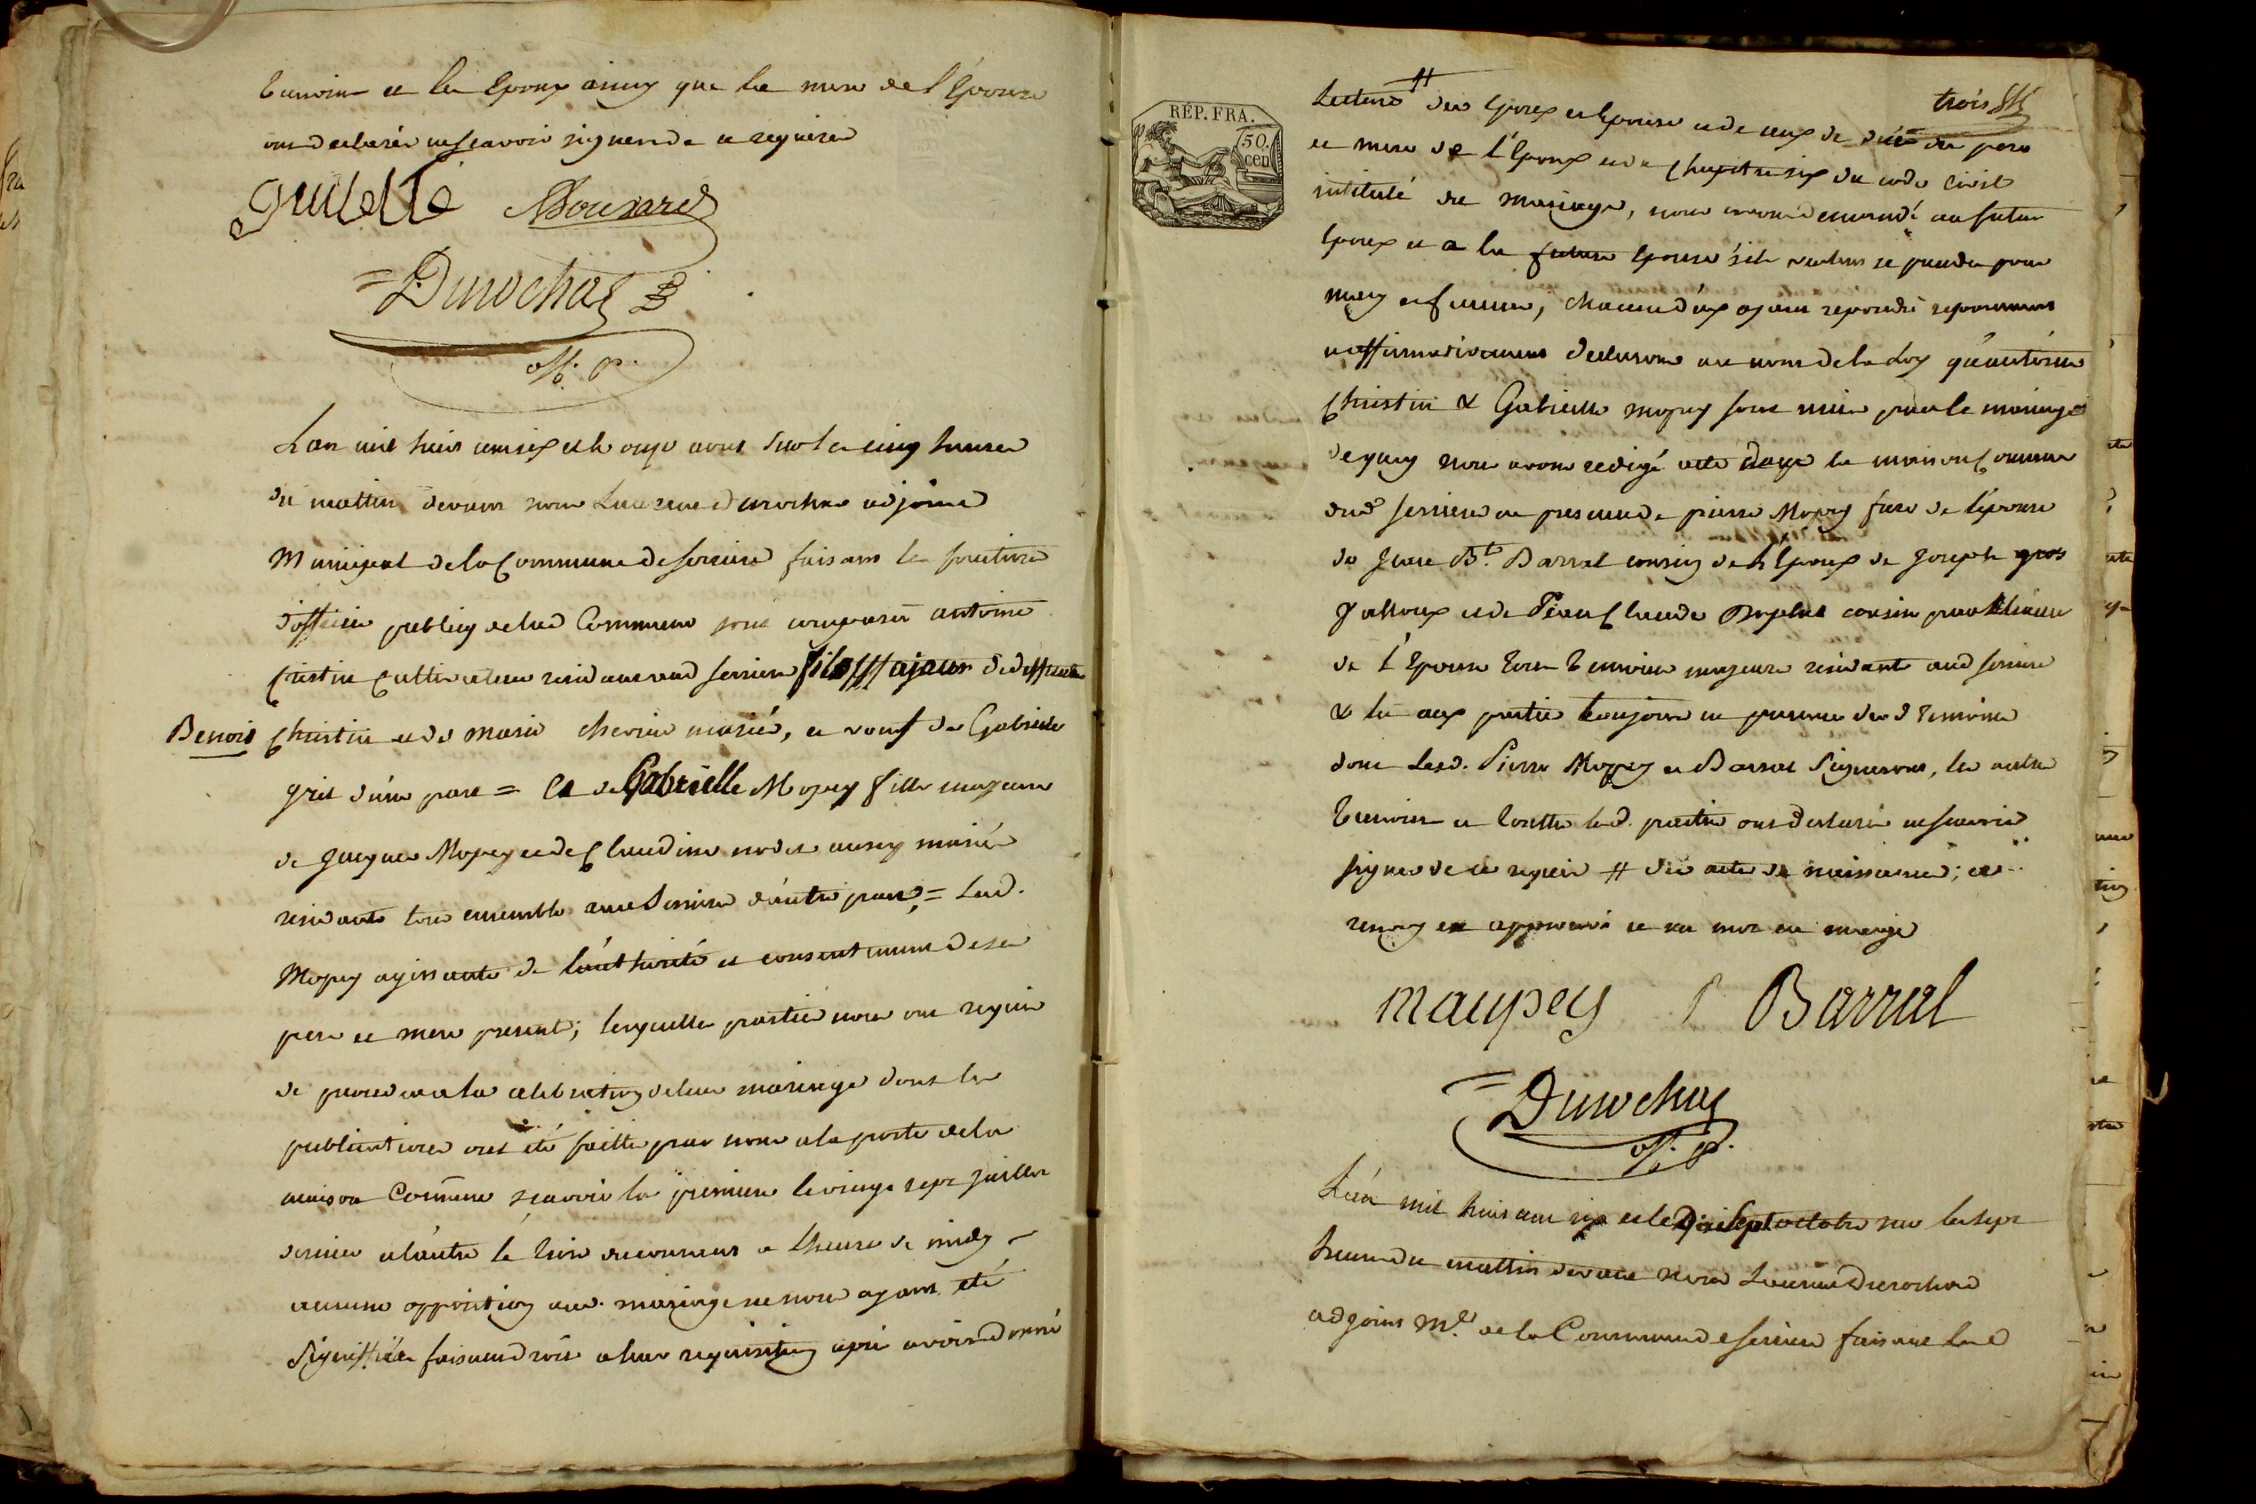 temoins et les Epoux ainsy que la mere de l'Epouse
ont declarés ne scavoir signer de ce requises
guilette Mouxard
= Durochat
off. p.
L'an mil huit cent six et le onze aout sur les cinq heures
du mattin devant nous Laurent durochat adjoint
Municipal de la Commune de serrieres faisant les fonctions
d'officier publicq de lad Commune sont comparus antoine
Cristin Cultivateur residant aud serrieres fils majeur de deffunts
Benois Christin et de marie mariés, et veuf de Gabrielle
d'une part = Et de Gabrielle Mopey fille majeure
de Jacques Mopey et de Claudine aussy mariés
residants tous ensemble aud Serrieres d'autre part = Lad.
Mopey agissante de l'authorité et consentement de ses
pere et mere presents; lesquelles parties nous ont requis
de proceder a la celebration de leur mariage dont les
publications ont été faittes par nous a la porte de la
maison Commune scavoir la premiere le vingt sept juillet
dernier et l'autre le trois du courant a l'heure de midy
aucune opposition aud. mariage ne nous ayant eté
Signiffiée faisant droit a leur requisition apres avoir donné
trois
RÉP. FRA.
50 cen
Lecture # des Epoux et Epouse et de ceux de décès des pere
et mere de l'Epoux et du Chapitre six du code Civil
intitulé du Mariage, nous avons demandé au futur
Epoux et a la future Epouse s'ils veulent se prendre pour
mary et femme, chacun d'eux ayant repondu separement
et affirmativement declarons au nom de la Loy qu'antoine
Christin & Gabrielle mopey sont unis par le mariage
de quoy nous avons redigé acte dans la maison Commune
dud serrieres en presence de pierre Mopey frere de l'epouse
de Jean Bt. Barral cousin de l'Epoux de Joseph gros
et de Jean Claude cousin
de l'Epouse tous temoins majeurs residants aud serrieres
& lu aux parties toujours en presence desd temoins
dont Lesd. Pierre Mopey et Barral Signeront, les autres
temoins et touttes lesd. parties ont declarés ne scavoir
signer de ce requis # des actes de naissance; et
renvoy en approuvé ce mot en marge
maupey Barral
= Durochat
off. p.
L'an mil huit cent six et le Dix Sept octobre sur les sept
heures du mattin devant nous Laurent Durochat
adjoint Ml. de la Commune de serrieres faisant les